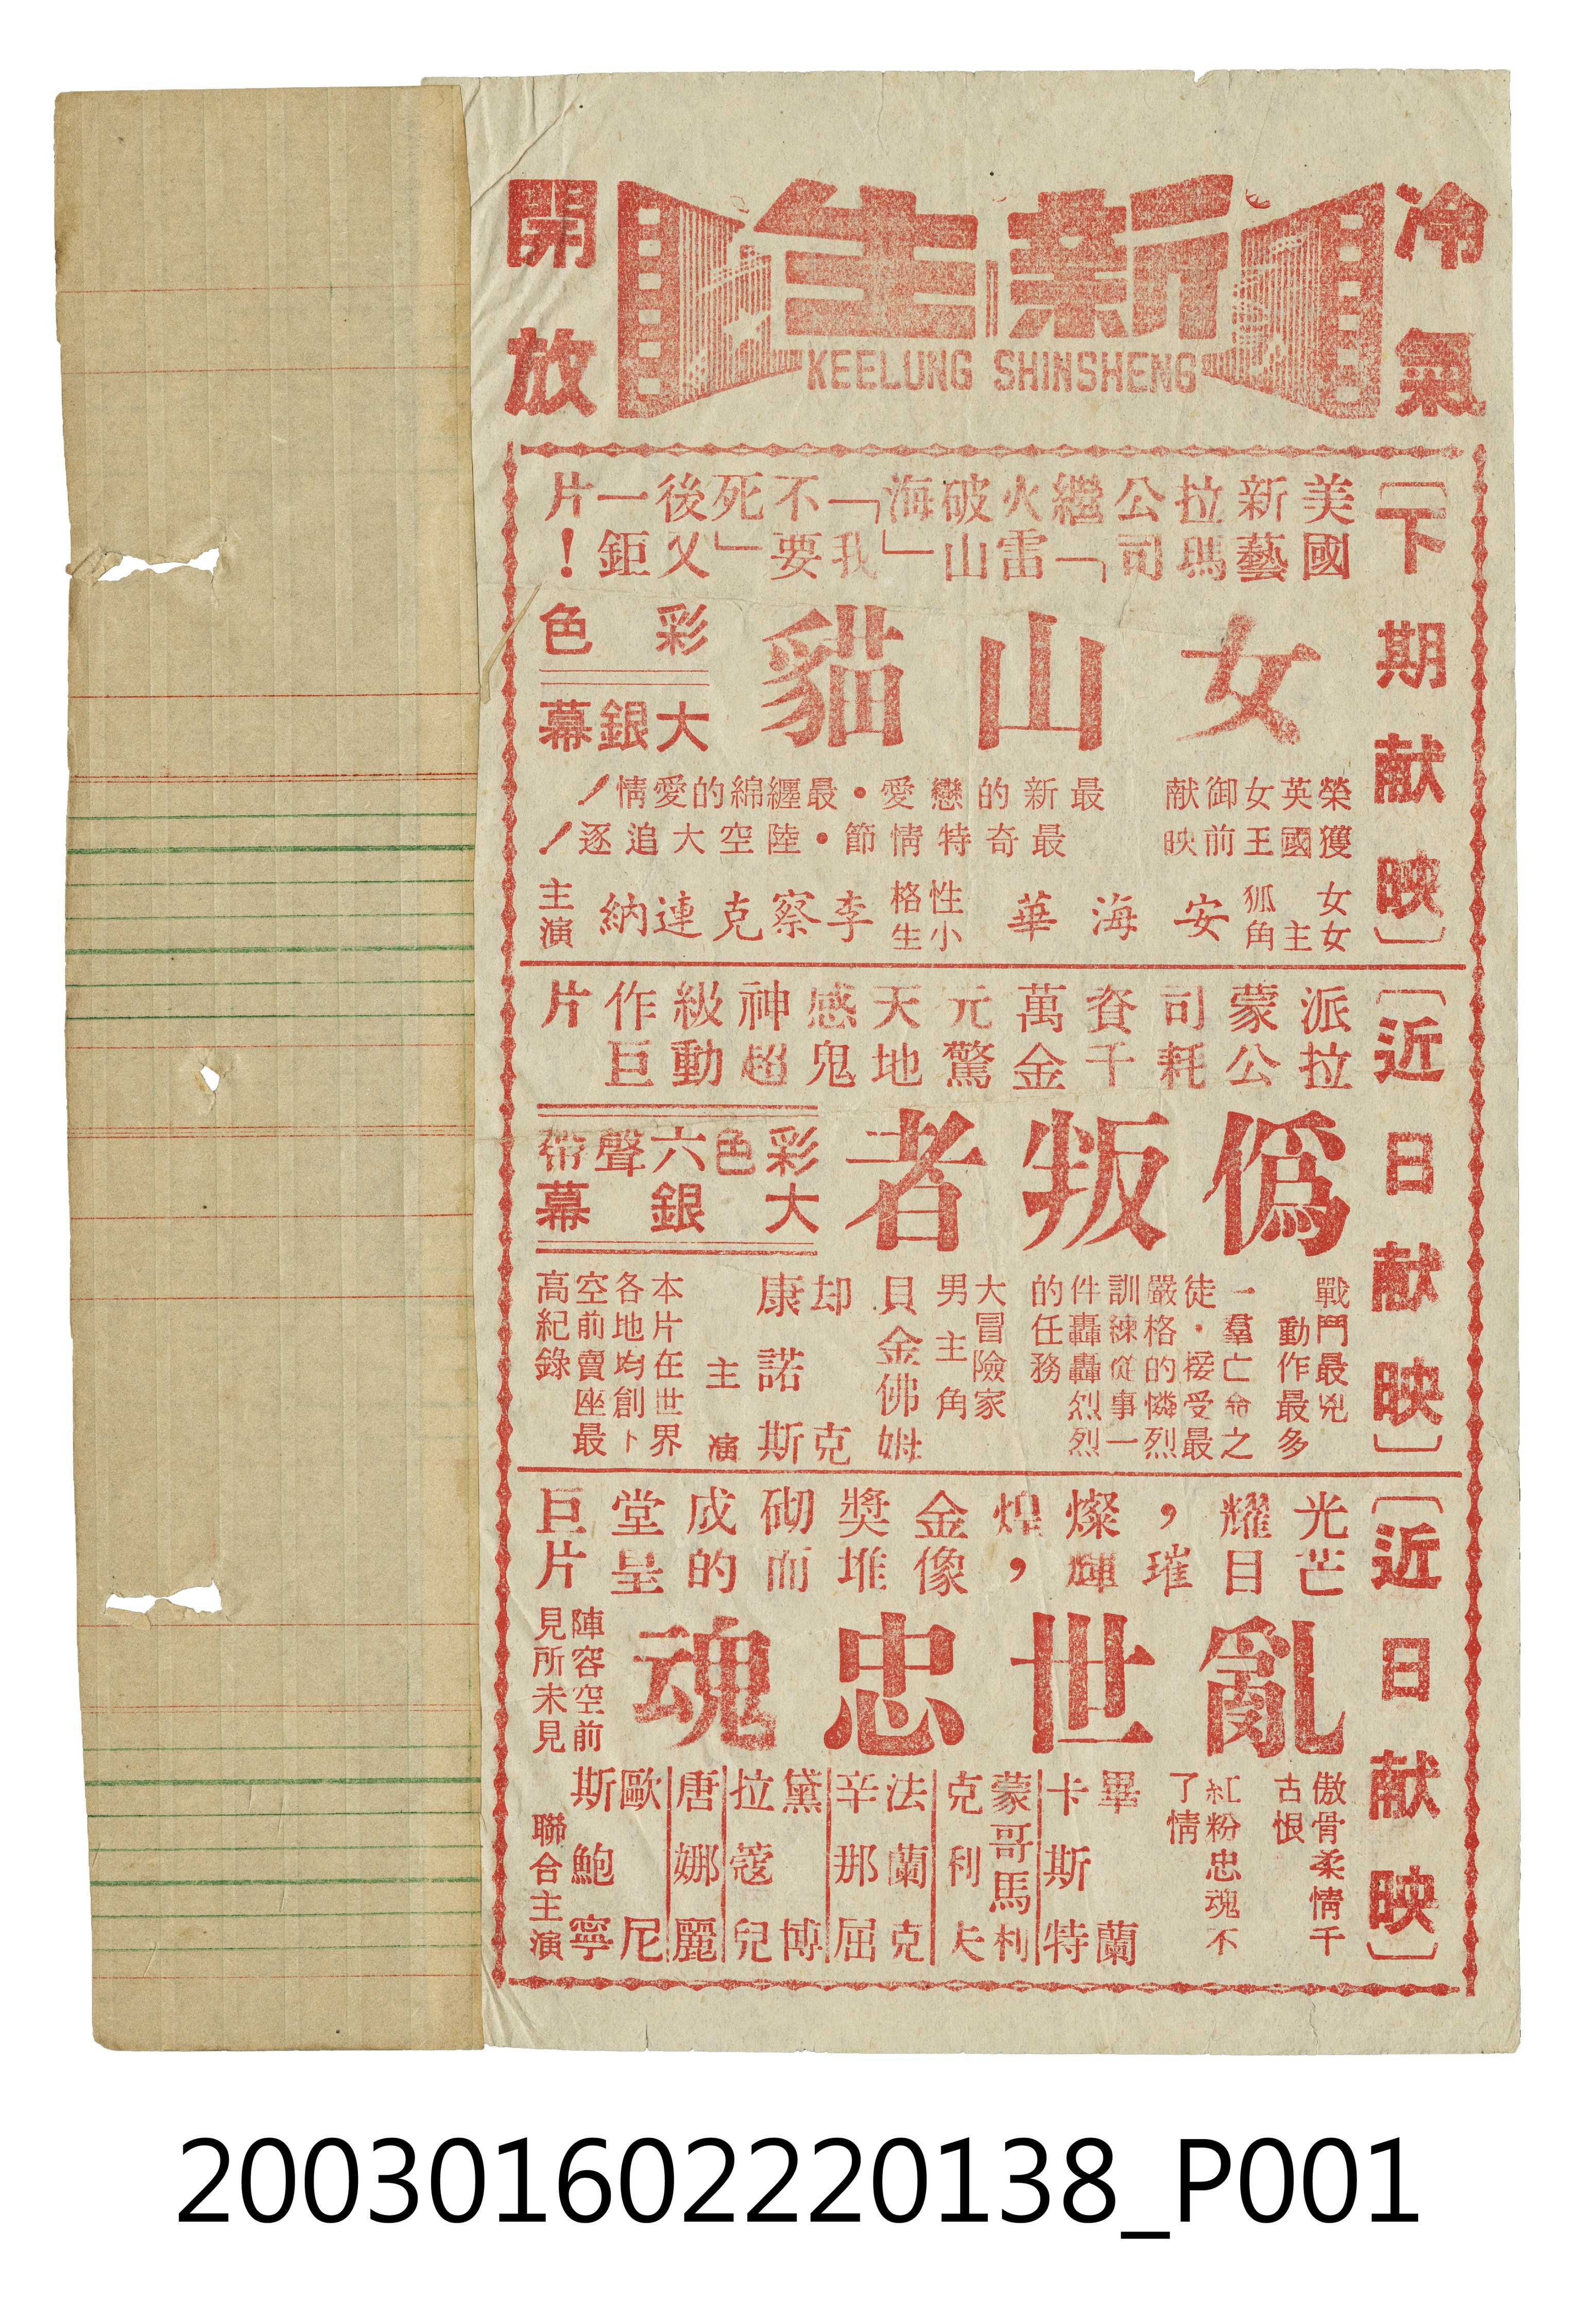 冷氣
新生
KEELUNG SHINSHENG
開放
〔下期献映〕
美國新藝拉瑪公司繼「火雷破山海」「我不要死」後又一鉅片！
女山貓
彩色
大銀幕
榮獲英國女王御前献映
最新的戀愛・最纏綿的愛情！
最奇特情節・陸空大追逐！
女狐女主角
安海華
性格小生
李察克連納
主演
〔近日献映〕
派拉蒙公司耗資千萬金元驚天地感鬼神超級動作巨片
偽叛者
彩色六聲帶
大銀幕
戰鬥最兇
動作最多
一羣亡命之
徒・接受最
嚴格的憐烈
訓練從事一
件轟轟烈烈
的任務
大冒險家
男主角
貝金佛姆
却克
康諾斯
主演
本片在世界
各地均創下
空前賣座最
高紀錄
〔近日献映〕
光芒耀目，璀燦輝煌，金像獎堆砌而成的堂呈巨片
亂世忠魂
陣容空前
見所未見
傲骨柔情千
古恨
紅粉忠魂不
了情
畢蘭
卡斯特
蒙哥馬利
克利夫
法蘭克
辛那屈
黛博
拉蔻兒
唐娜麗
歐尼
斯鮑寧
聯合主演
200301602220138_P001